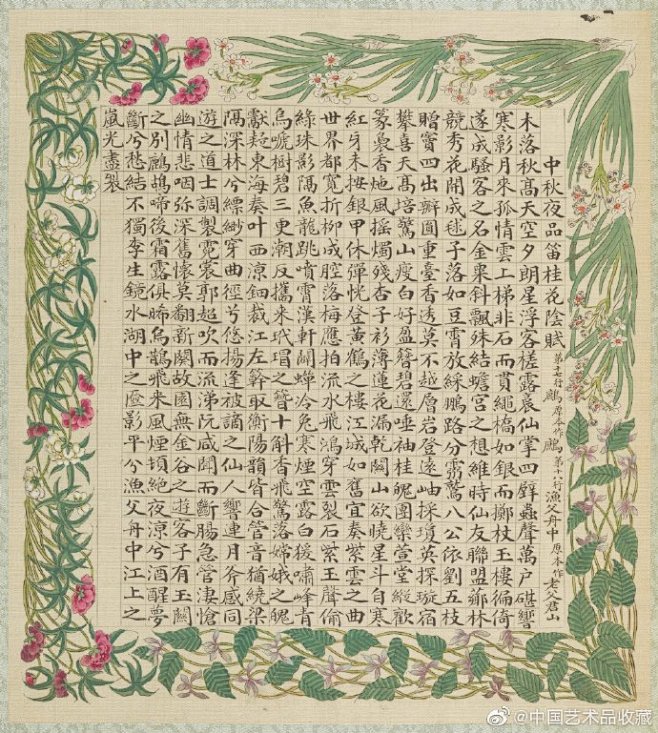 中秋夜品笛桂花陰賦 第十七行鷓原本作鵬 第十行漁父舟中原本作老父君山
木落秋髙天空夕朗星浮客槎露裛仙掌四壁蟲聲萬户碪響
寒影月來孤情雲上梯非石而貫繩橋如銀而擲杖玉樓徧倚
遂成騷客之名金粟斜飄殊結蟾宮之想維時仙友聯盟薌林
競秀花開成毬子落如豆霄放綵鵬路分霧驚八公依劉五枝
贈竇四出瓣圓重臺香透莫不越層岩登遠岫採瓊英探璇宿
攀喜天髙培驚山瘦白好盈簪碧還唾袖桂魄團欒萱堂縱歡
篆裊香炧風搖燭殘杏子衫薄蓮花漏乾闗山欲曉星斗自寒
紅牙未按銀甲休彈恍登黃鶴之樓江城如舊宜奏紫雲之曲
世界都寬折柳成腔落梅應拍流水飛鴻穿雲裂石紫玉聲偷
綠珠影隔魚龍跳噴霄漢軒闢蟬冷兔寒煙空露白猨嘯峰青
烏嗁樹碧三更潮反攜來玳瑁之簪十斛香飛驚落嫦娥之魄
獻趍東海奏叶西涼鈿裁江左簳取衡陽韻皆合管音猶繞梁
隔深林兮縹緲穿曲徑兮悠揚逢被謫之仙人響連月斧感同
遊之道士調製霓裳郭超吹而流涕阮咸聞而斷腸急管淒愴
幽情悲咽弥深舊懷莫翻新闋故園無金谷之遊客子有玉闗
之別鷓鴣啼後霜露俱晞烏鵲飛來風煙頓絕夜涼兮酒醒夢
斷兮愁結不獨李生鏡水湖中之影平兮漁父舟中江上之
嵐光畫製
@中国艺术品收藏